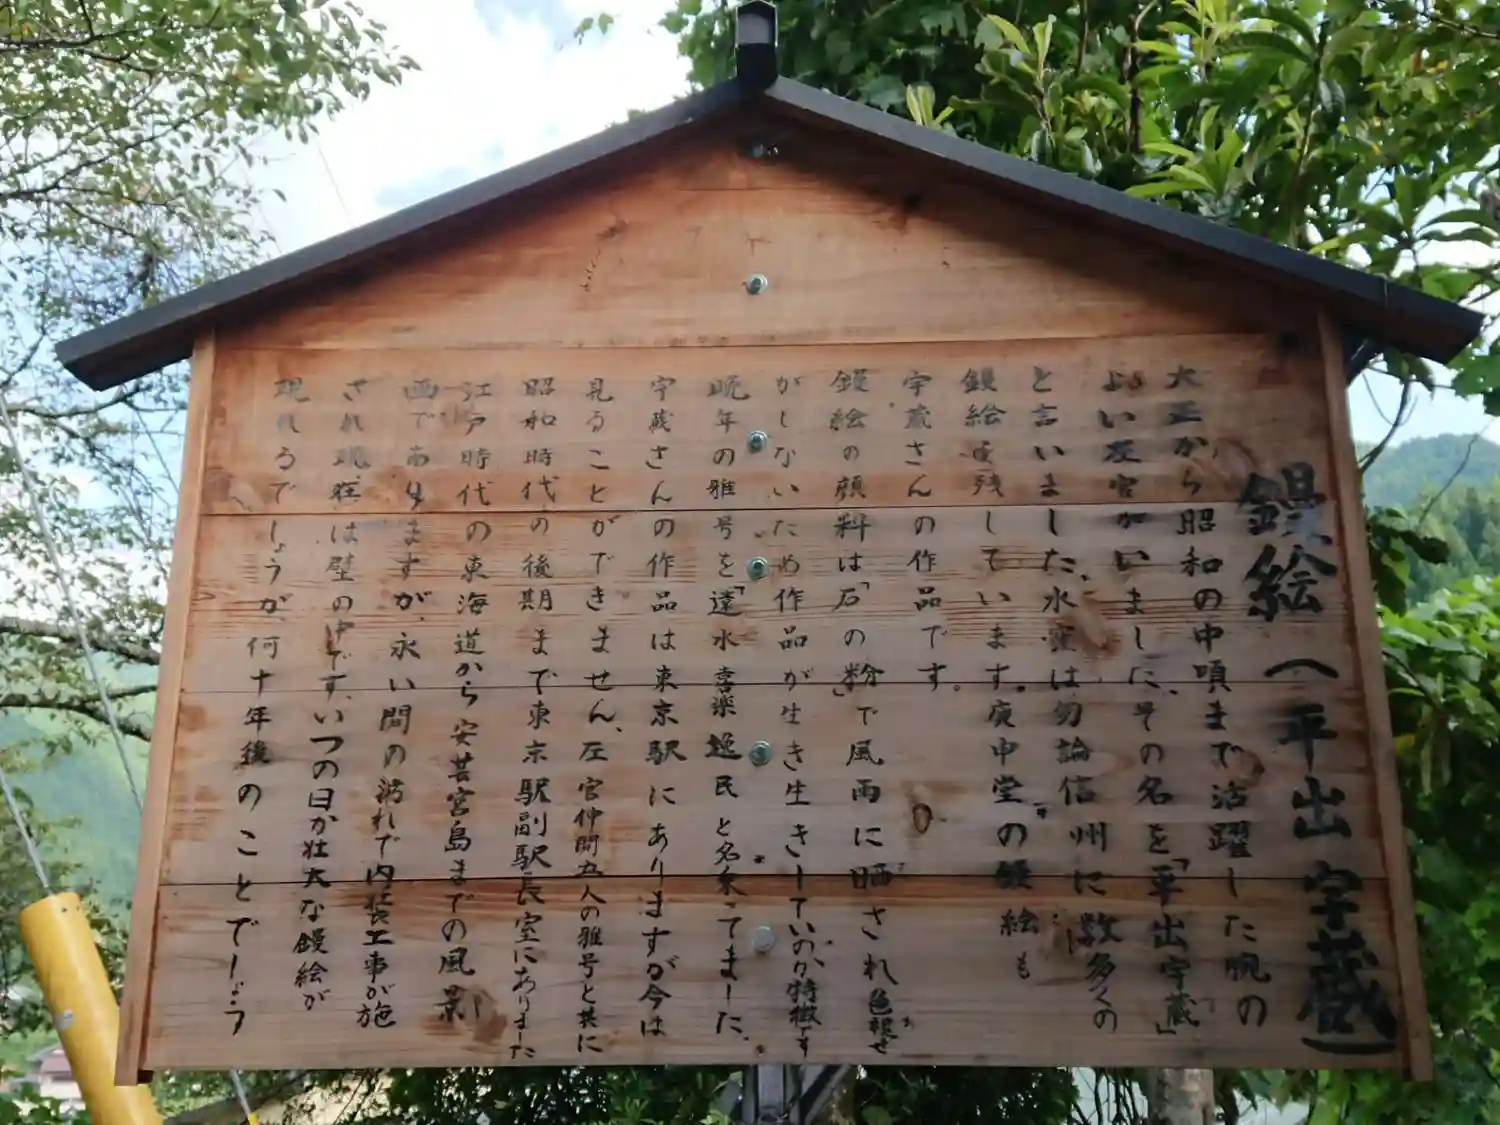 鏝絵(平出宇蔵)
大正から昭和の中頃まで活躍した腕の
よい左官がいました、その名を「平出宇蔵」
と言いました、水窪は勿論信州に数多くの
鏝絵を残しています。庚申堂の鏝絵も
宇蔵さんの作品です。
鏝絵の顔料は「石の粉」で風雨に晒され色褪せ
がしないため作品が生き生きしているのが特徴です
晩年の雅号を「遠水喜楽逸民と名乗ってました。
宇蔵さんの作品は東京駅にありますが今は
見ることができません、左官仲間五人の雅号と共に
昭和時代の後期まで東京駅副駅長室にありました
江戸時代の東海道から安芸宮島までの風景
画でありますが、永い間の汚れで内装工事が施
され現在は壁の中です、いつの日か壮大な鏝絵が
現れるでしょうが、何十年後のことでしょう